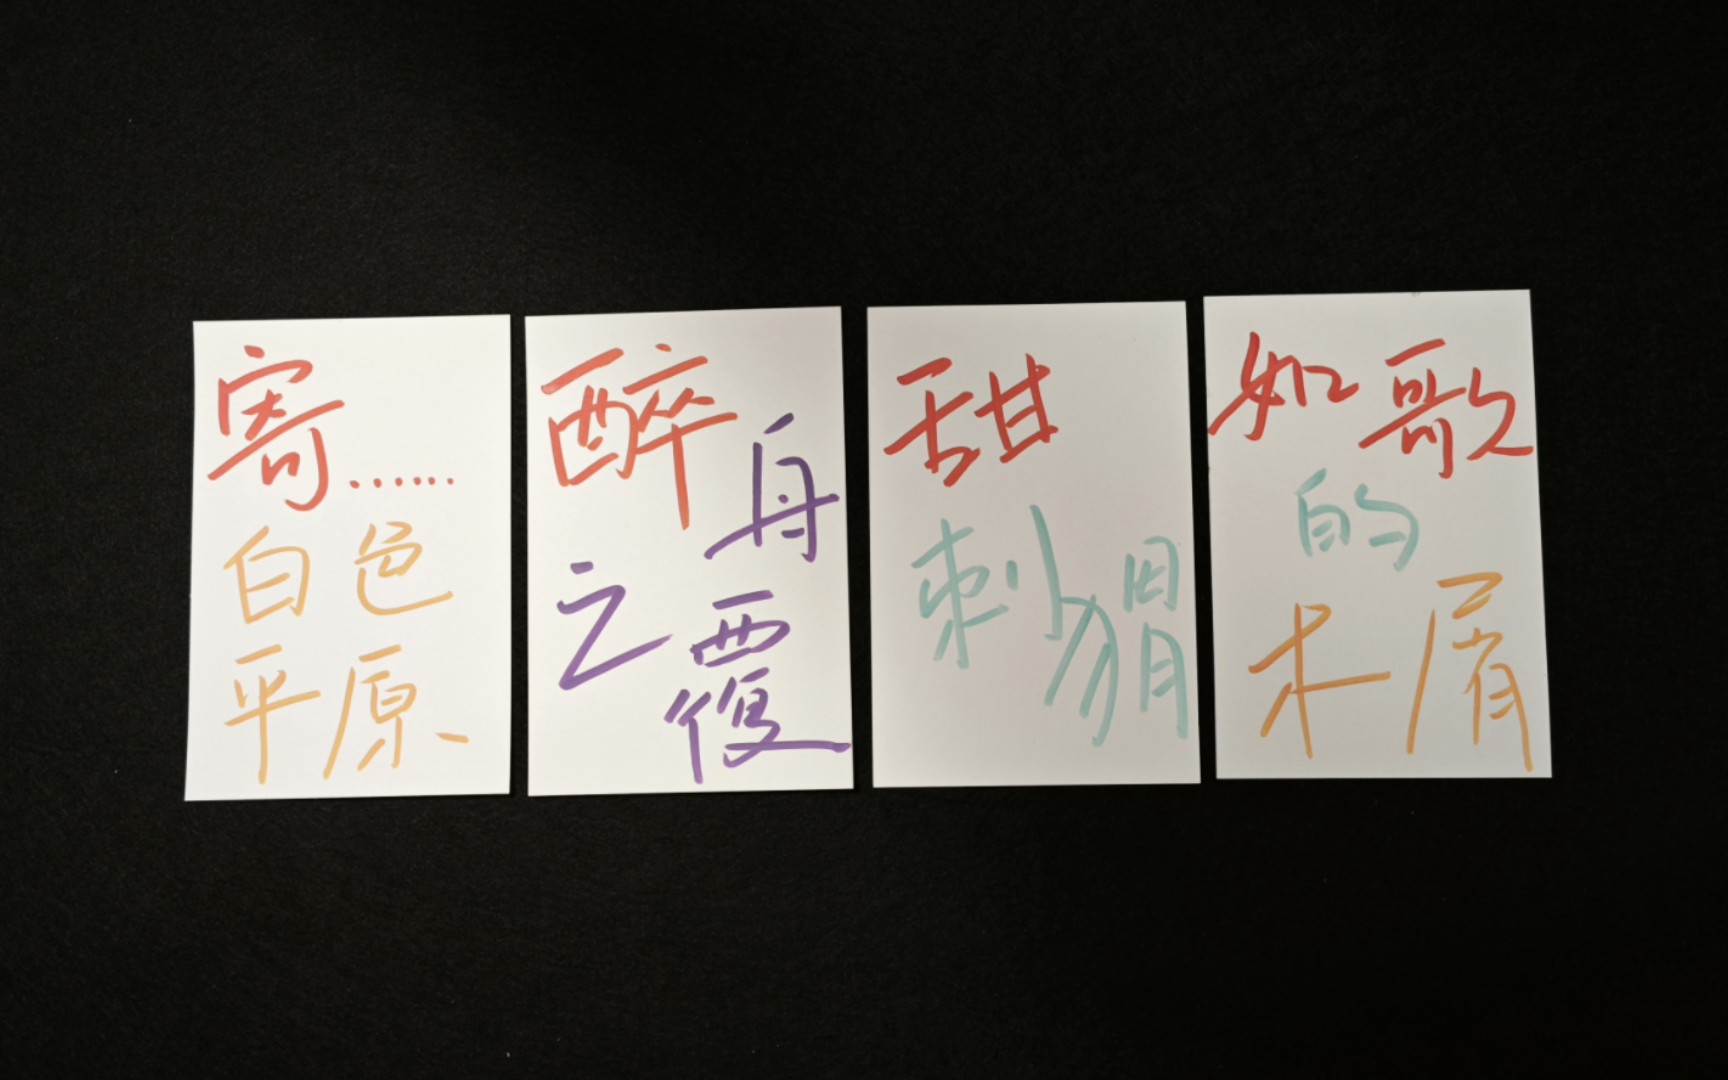 寄……
白色
平原
醉舟
之覆
甜
刺猬
如歌
的
木屑